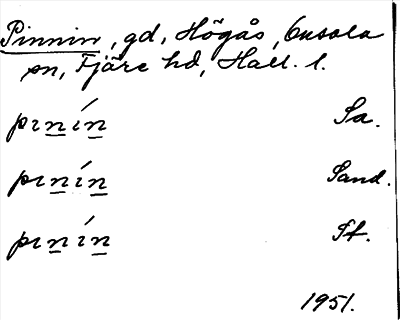 Pinnin, gd, Högås, Onsala
sn, Fjäre hd, Hall. l.
pɪnín Sa.
pɪnín Sand.
pɪnín St.
1951.